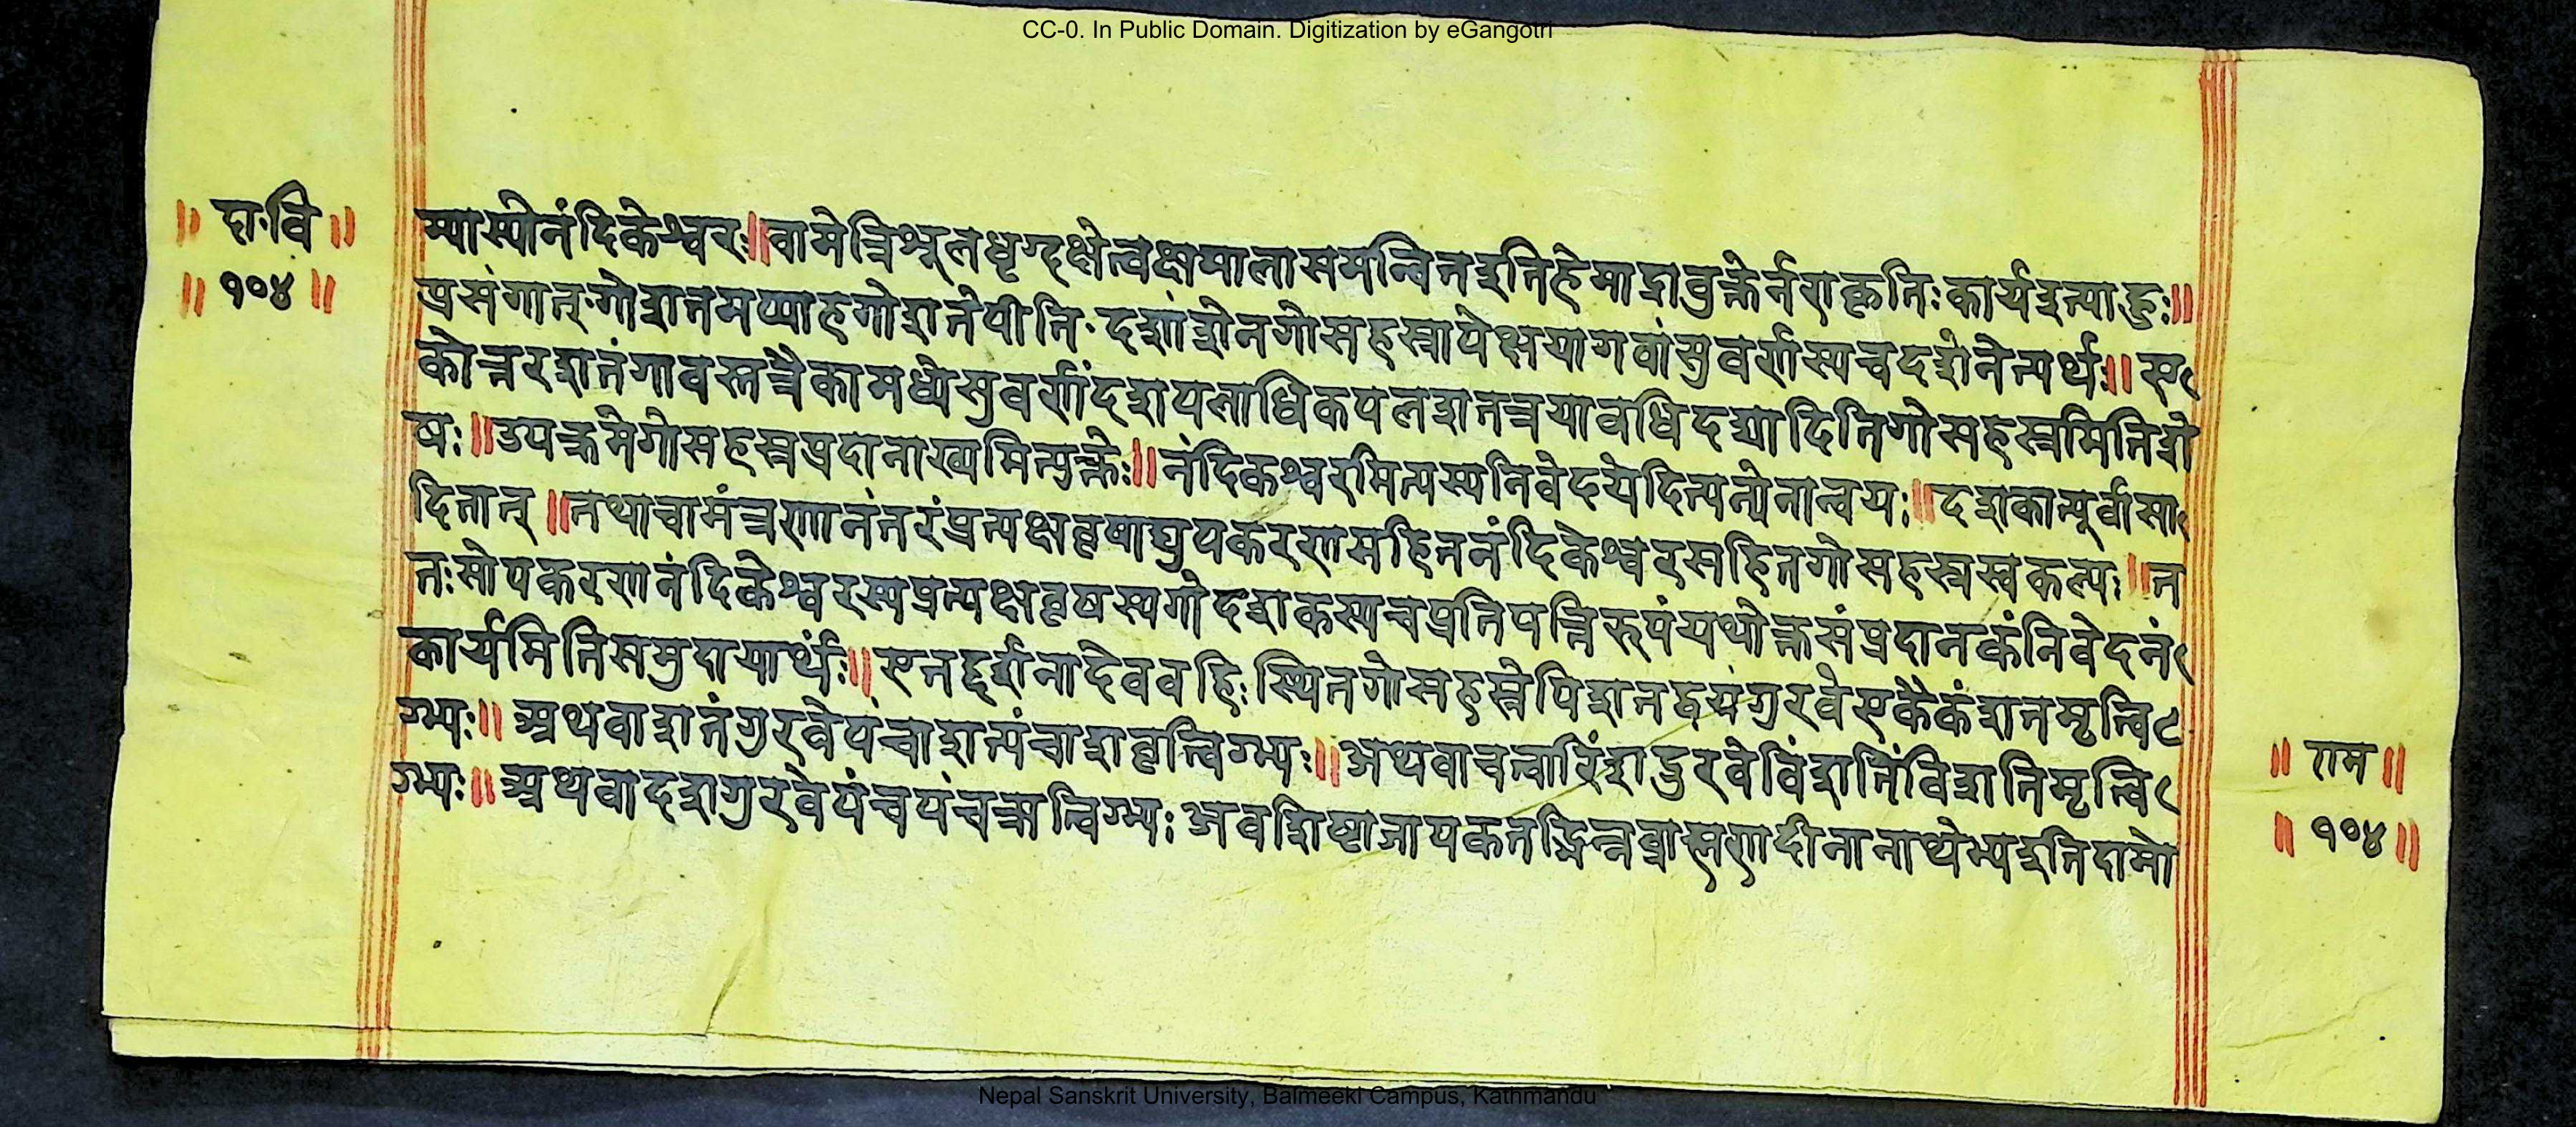 CC-0. In Public Domain. Digitization by eGangotri
॥ दा॰वि ॥
॥ १०४ ॥
म्यास्योनंदिकेश्वरः॥वामेत्रिशूलधृग्दक्षेत्वक्षमालासमन्वितइतिहेमाद्रावुक्तेर्नराकृतिःकार्यइत्याहुः॥
प्रसंगात्गोशतमप्याहगोशतेपीति॰दशांशेनगोसहस्रापेक्षयागवांसुवर्णस्यचदशंनेत्यर्थः॥ए
कोत्तरशतंगावस्तत्रैकामध्येसुवर्णंदशपलाधिकपलशतत्रयावधिदद्यादितिगोसहस्रमितिशे
षः॥उपक्रमेगोसहस्रप्रदानाख्यमित्युक्तेः॥नंदिकश्वरमित्यस्यनिवेदयेदित्यत्येनान्वयः॥दशकात्पूर्वासा
दितात्॥तथाचामंत्रणानंतरंप्रत्यक्षवृषाद्युपकरणसहितनंदिकेश्वरसहितगोसहस्रस्वकल्पः॥त
तःसोपकरणनंदिकेश्वरस्यप्रत्यक्षवृषस्यगोदशकस्यचप्रतिपत्तिरुपंयथोक्तसंप्रदानकंनिवेदनं
कार्यमितिसमुदायार्थः॥एतद्दर्शनादेववहिःस्थितगोसहस्रेपिशतद्वयंगुरवेएकैकंशतमृत्वि
ग्भ्यः॥अथवाशतंगुरवेपंचाशत्पंचाशवृत्विग्भ्यः॥अथवाचत्वारिंशद्गुरवेविंशतिंविंशतिमृत्वि
ग्भ्यः॥अथवादशगुरवेपंचपंचऋत्विग्भ्यःअवशिष्टाजापकतद्भिन्नब्राह्मणादीनानाथेभ्यइतिदामो
॥ राम ॥
॥ १०४ ॥
Nepal Sanskrit University, Balmeeki Campus, Kathmandu